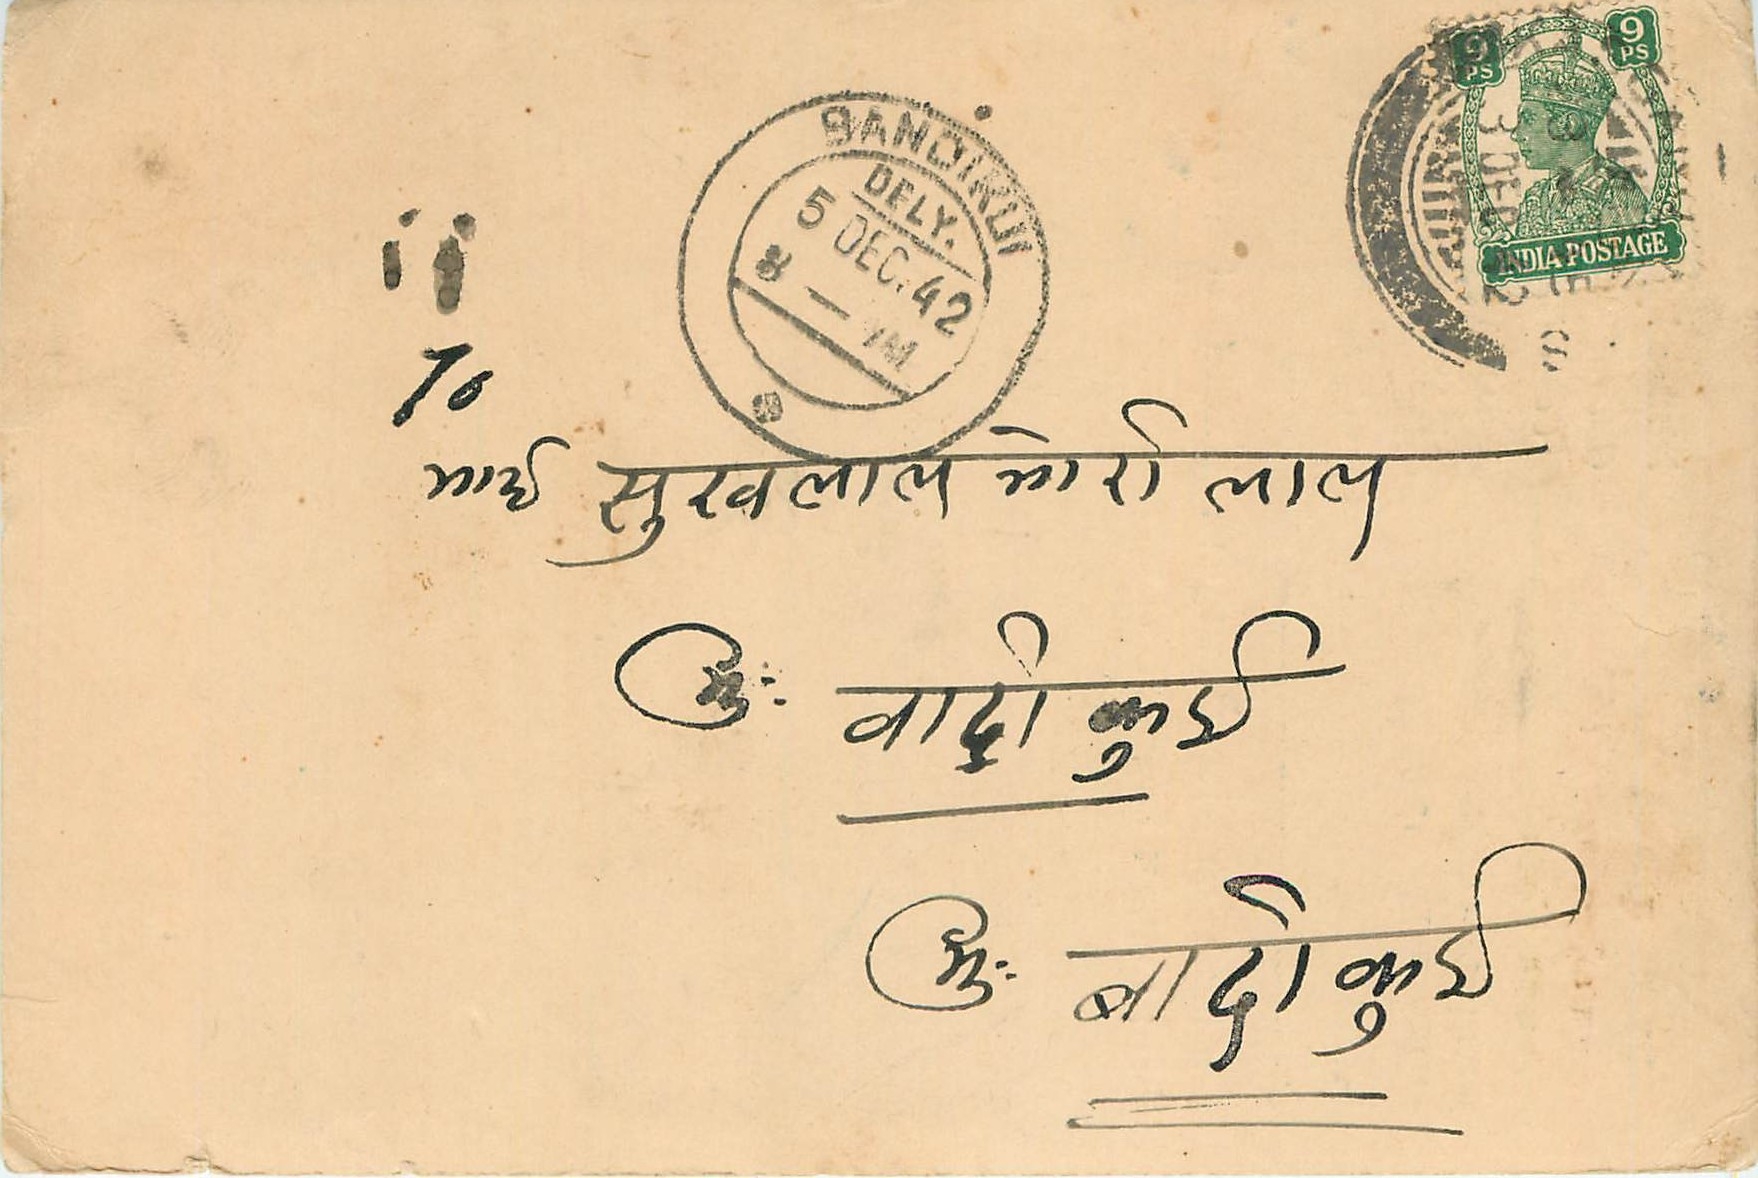 9 PS
9 PS
INDIA POSTAGE
BANDIKUI
DELY.
5 DEC. 42
3 DEC
To
भाई सुखलाल मोरी लाल
मु: बादीकुई
मु: बादीकुई